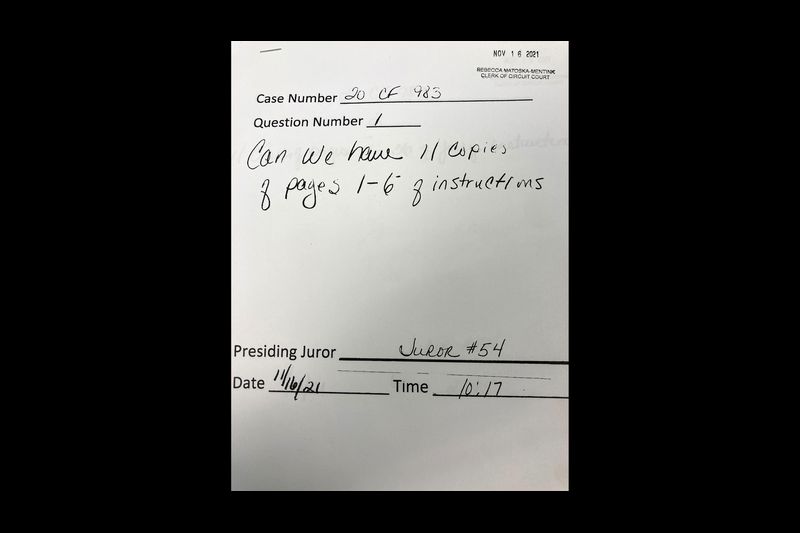 NOV 16 2021
REBECCA MATOSKA-MENTINK
CLERK OF CIRCUIT COURT
Case Number 20 CF 983
Question Number 1
Can we have 11 copies
of pages 1-6 of instructions
Presiding Juror Juror #54
Date 11/16/21 Time 10:17